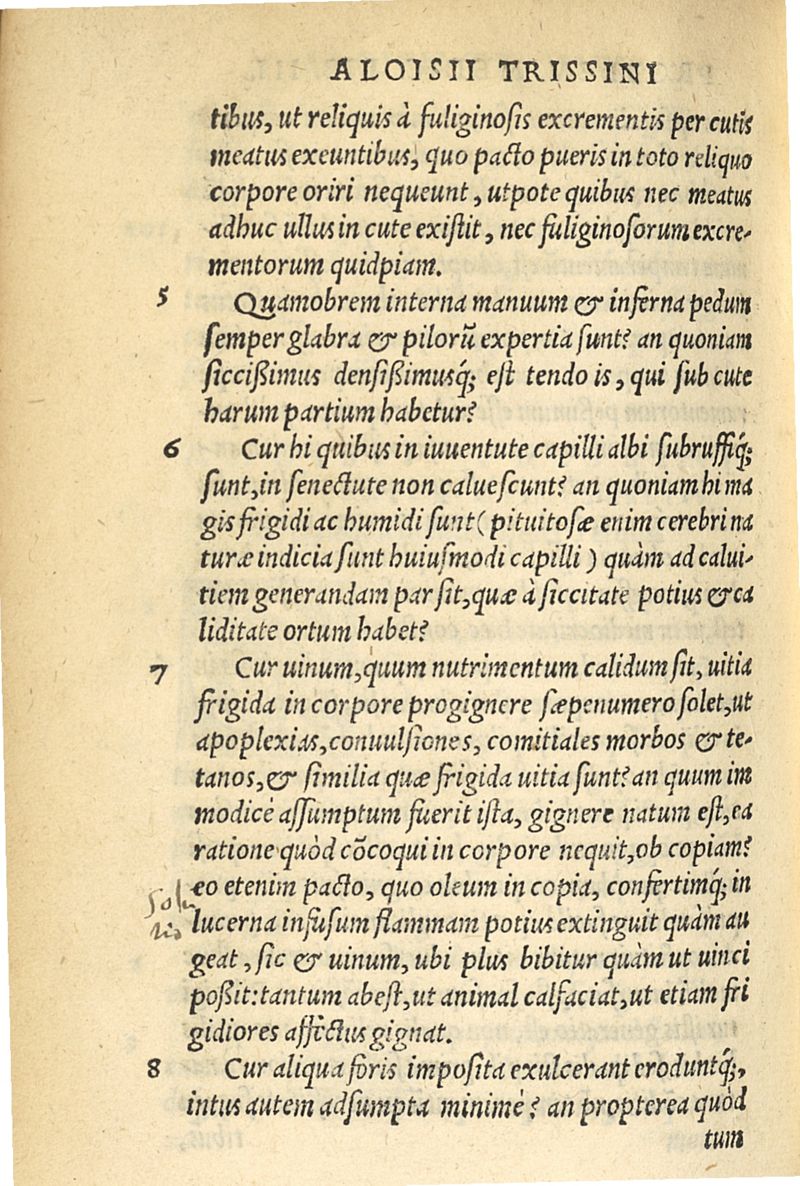 ALOISII TRISSINI
tibus, ut reliquis à fuliginosis excrementis per cutis
meatus exeuntibus, quo pacto pueris in toto reliquo
corpore oriri nequeunt, utpote quibus nec meatus
adhuc ullus in cute existit, nec fuliginosorum excre-
mentorum quidpiam.
5 Quamobrem interna manuum & inferna pedum
semper glabra & pilorũ expertia sunt? an quoniam
siccißimus densißimusq́; est tendo is, qui sub cute
harum partium habetur?
6 Cur hi quibus in iuuentute capilli albi subruffiq́;
sunt, in senectute non caluescunt? an quoniam hi ma
gis frigidi ac humidi sunt (pituitosæ enim cerebri na
turæ indicia sunt huiusmodi capilli) quàm ad calui-
tiem generandam par sit, quæ à siccitate potius & ca
liditate ortum habet?
7 Cur uinum, quum nutrimentum calidum sit, uitia
frigida in corpore progignere sæpenumero solet, ut
apoplexias, conuulsiones, comitiales morbos & te-
tanos, & similia quæ frigida uitia sunt? an quum im
modicè assumptum fuerit ista, gignere natum est, ea
ratione quòd cõcoqui in corpore nequit, ob copiam?
eo etenim pacto, quo oleum in copia, confertimq́; in
lucerna infusum flammam potius extinguit quàm au
geat, sic & uinum, ubi plus bibitur quàm ut uinci
poßit: tantum abest, ut animal calfaciat, ut etiam fri
gidiores affectus gignat.
8 Cur aliqua foris imposita exulcerant eroduntq́;,
intus autem adsumpta minimè? an propterea quòd
tum